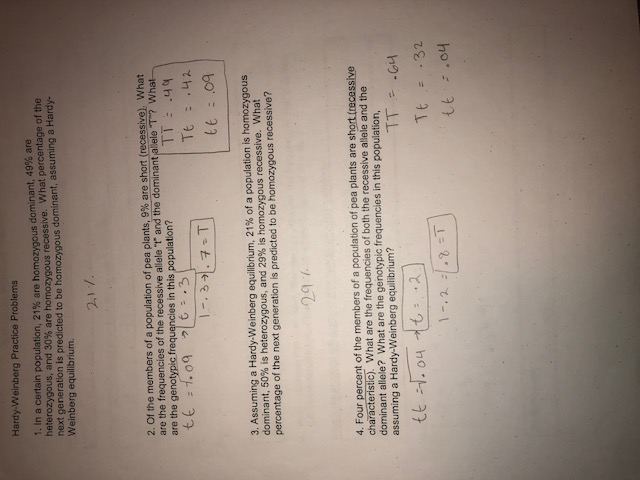 Hardy-Weinberg Practice Problems
1. In a certain population, 21% are homozygous dominant, 49% are
heterozygous, and 30% are homozygous recessive. What percentage of the
next generation is predicted to be homozygous dominant, assuming a Hardy-
Weinberg equilibrium.
21%
2. Of the members of a population of pea plants, 9% are short (recessive). What
are the frequencies of the recessive allele "t" and the dominant allele "T"? What
are the genotypic frequencies in this population?
tt = √.09 → t = .3
1-.3 → .7 = T
TT = .49
Tt = .42
tt = .09
3. Assuming a Hardy-Weinberg equilibrium, 21% of a population is homozygous
dominant, 50% is heterozygous, and 29% is homozygous recessive. What
percentage of the next generation is predicted to be homozygous recessive?
29%
4. Four percent of the members of a population of pea plants are short (recessive
characteristic). What are the frequencies of both the recessive allele and the
dominant allele? What are the genotypic frequencies in this population,
assuming a Hardy-Weinberg equilibrium?
tt = √.04 → t = .2
1-.2 = .8 = T
TT = .64
Tt = .32
tt = .04